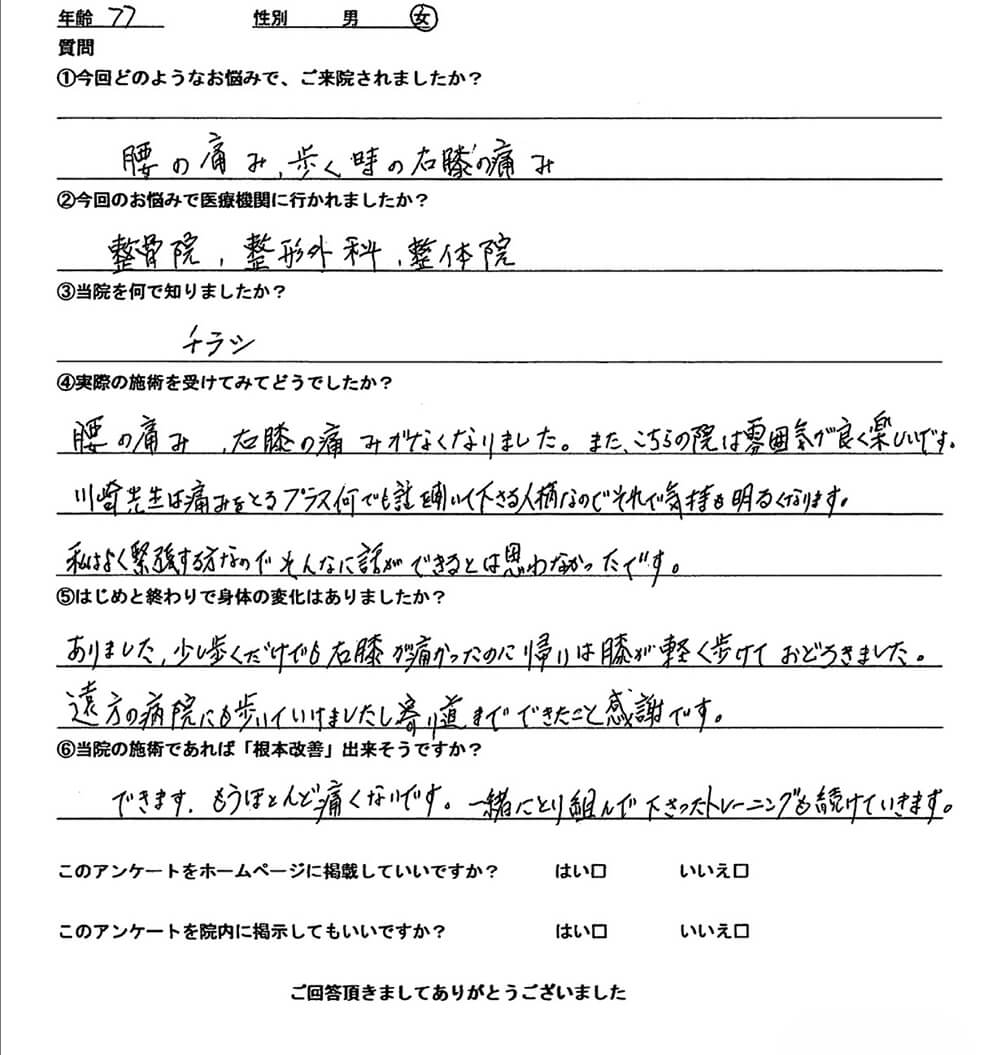 年齢 77 性別 男 女
質問
①今回どのようなお悩みで、ご来院されましたか？
腰の痛み、歩く時の右膝の痛み
②今回のお悩みで医療機関に行かれましたか？
整骨院、整形外科、整体院
③当院を何で知りましたか？
チラシ
④実際の施術を受けてみてどうでしたか？
腰の痛み、右膝の痛みがなくなりました。また、こちらの院は雰囲気が良く楽しいです。
川崎先生は痛みをとるプラス何でも話を聞いて下さる人柄なのでそれで気持も明るくなります。
私はよく緊張する方なのでそんなに話ができるとは思わなかったです。
⑤はじめと終わりで身体の変化はありましたか？
ありました、少し歩くだけでも右膝が痛かったのに帰りは膝が軽く歩けておどろきました。
遠方の病院にも歩いていけましたし寄り道までできたこと感謝です。
⑥当院の施術であれば「根本改善」出来そうですか？
できます、もうほとんど痛くないです。一緒にとり組んで下さったトレーニングも続けていきます。
このアンケートをホームページに掲載していいですか？ はい□ いいえ□
このアンケートを院内に掲示してもいいですか？ はい□ いいえ□
ご回答頂きましてありがとうございました